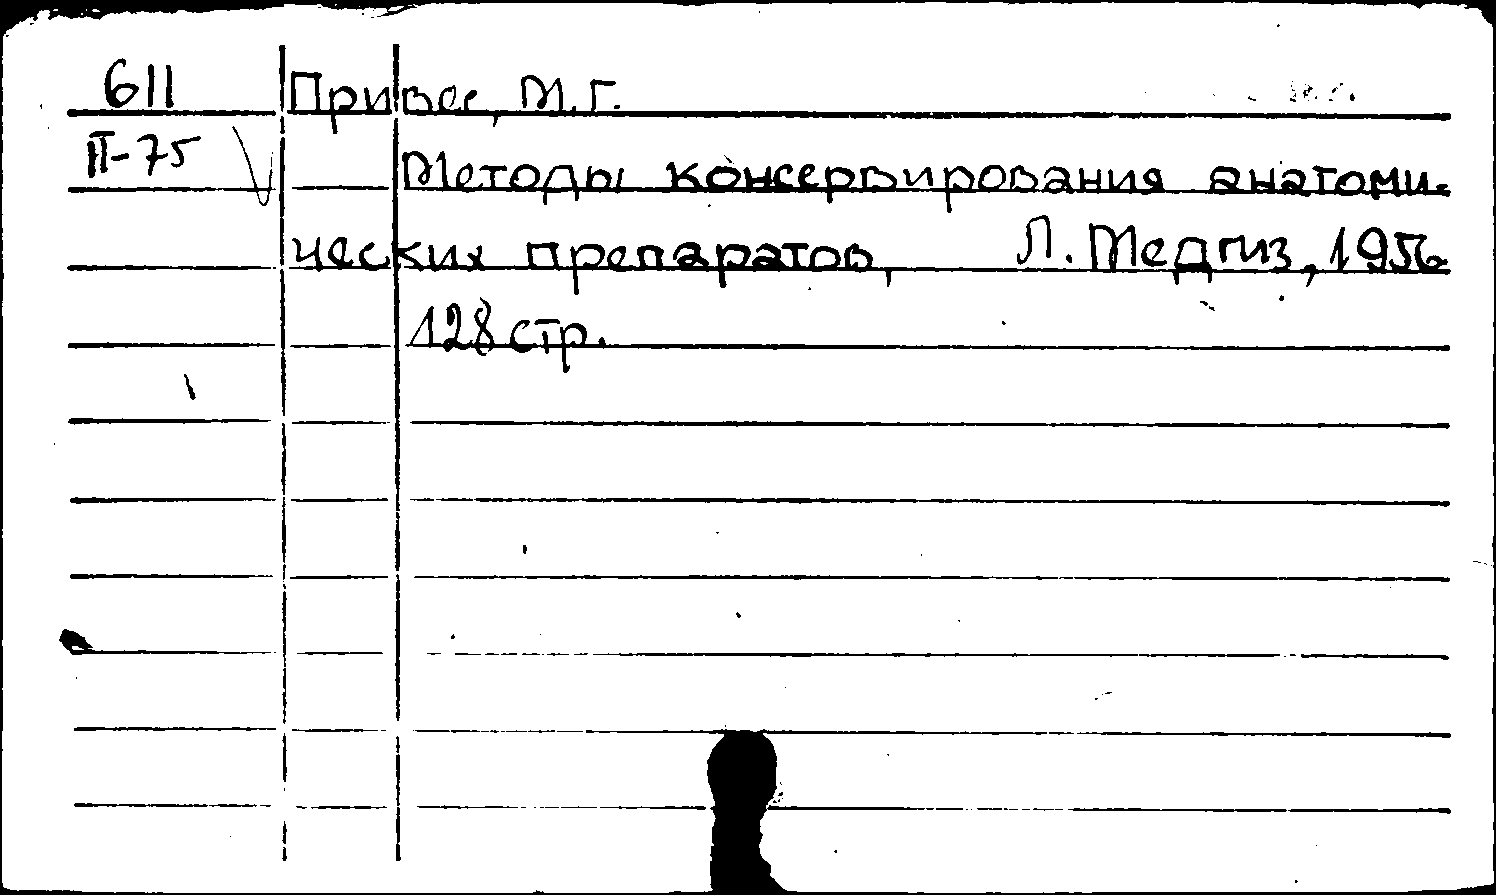 611 Привес, М.Г.
П-75 Методы консервирования анатоми-
ческих препаратов, Л. Медгиз, 1956
128 стр.